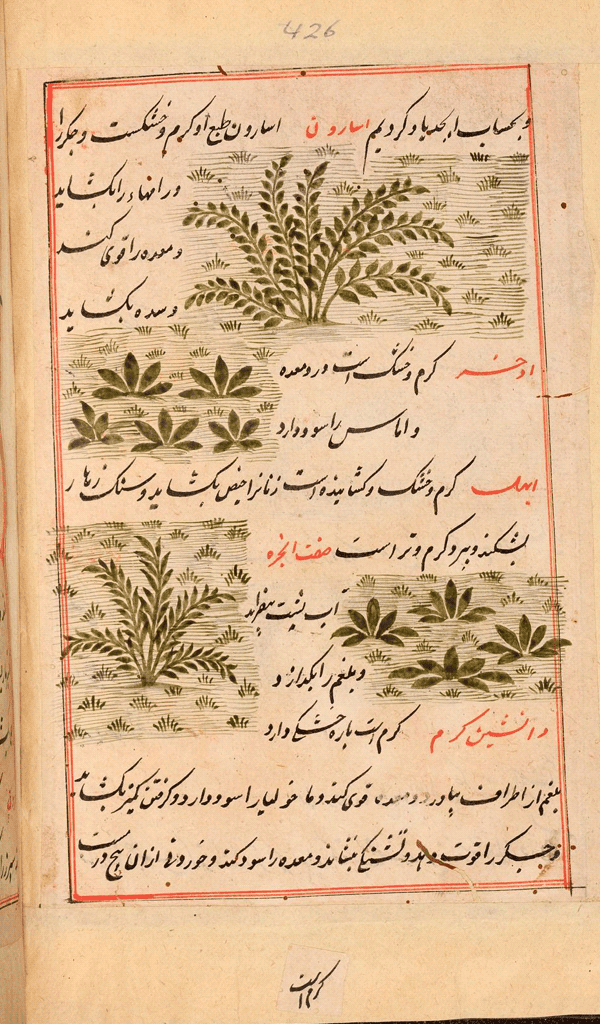 426
و بحساب ابجد یاد کردیم اسارون اسارون طبع او کرم و خشکست و جکر را
و راههاء را بکشاید
و معده را قوی کند
و سده بکشاید
اذخر کرم و خشک است و رو معده
و اماس را سود دارد
ابهل کرم و خشک و کشاینده است زنانرا حیض بکشاید و سنک زهار
بشکند و پیرو کرم و تر است صفت
آب پشت بیفزاید
و بلغم را بکدازد
کرم است باره خشکی دارد
بلغم از اطراف بیاورد و معده قوی کند و ما خولیا را سود دارد و کرفتن کمیز بکشاید
و جکر را قوت دهد و تشنکی بنشاند و معده را سود کند و خوردن از ان پنج درست
کرم است